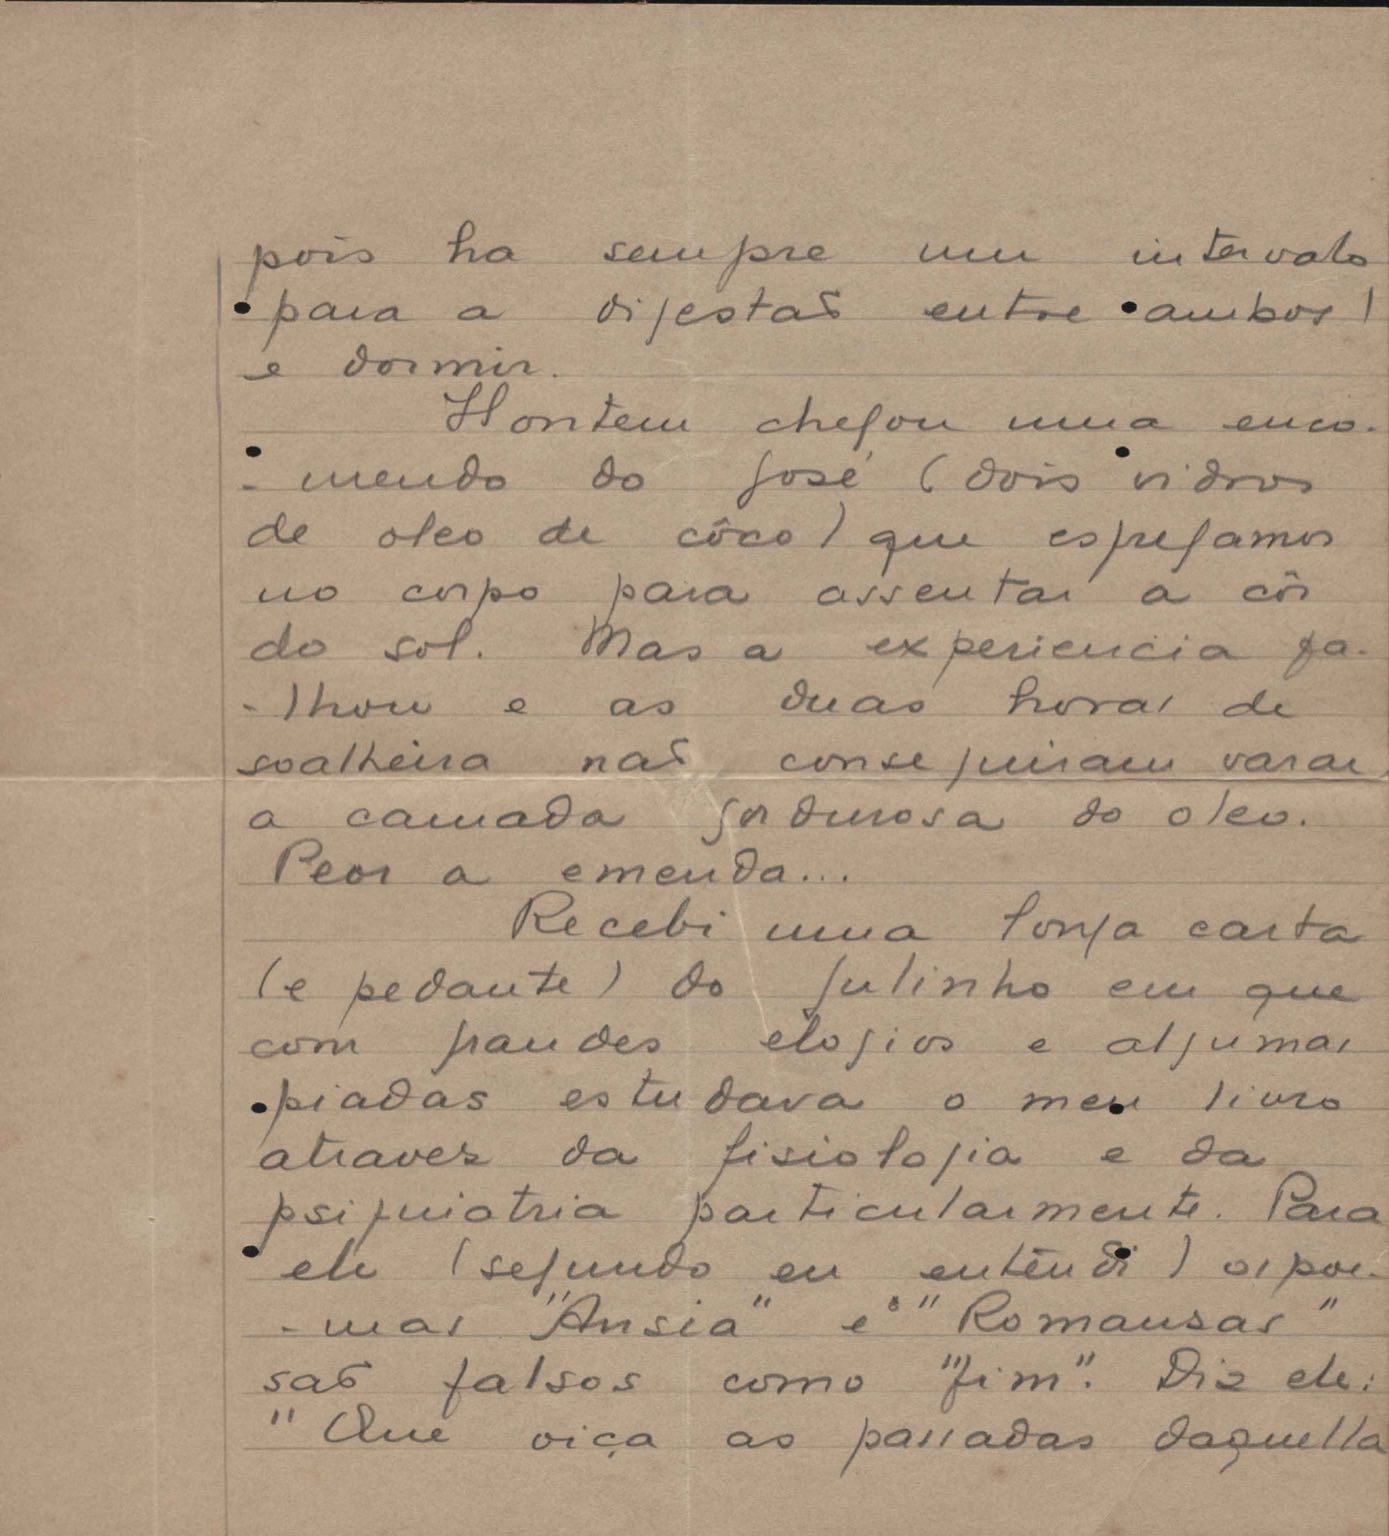 pois ha sempre um intervalo
para a digestão entre ambos)
e dormir.
Hontem chegou uma enco-
-menda do José (dois vidros
de oleo de côco) que esfregamos
no corpo para assentar a côr
do sol. Mas a experiencia fa-
-lhou e as duas horas de
soalheira não conseguiram varar
a camada gordurosa do oleo.
Peor a emenda...
Recebi uma longa carta
(e pedante) do Julinho em que
com grandes elogios e algumas
piadas estudava o meu livro
atravez da fisiologia e da
psiquiatria particularmente. Para
ele (segundo eu entendi) os poe-
-mas "Ansia" e "Romanzas"
são falsos como "fim". Diz ele:
"Que oiça as passadas daquella